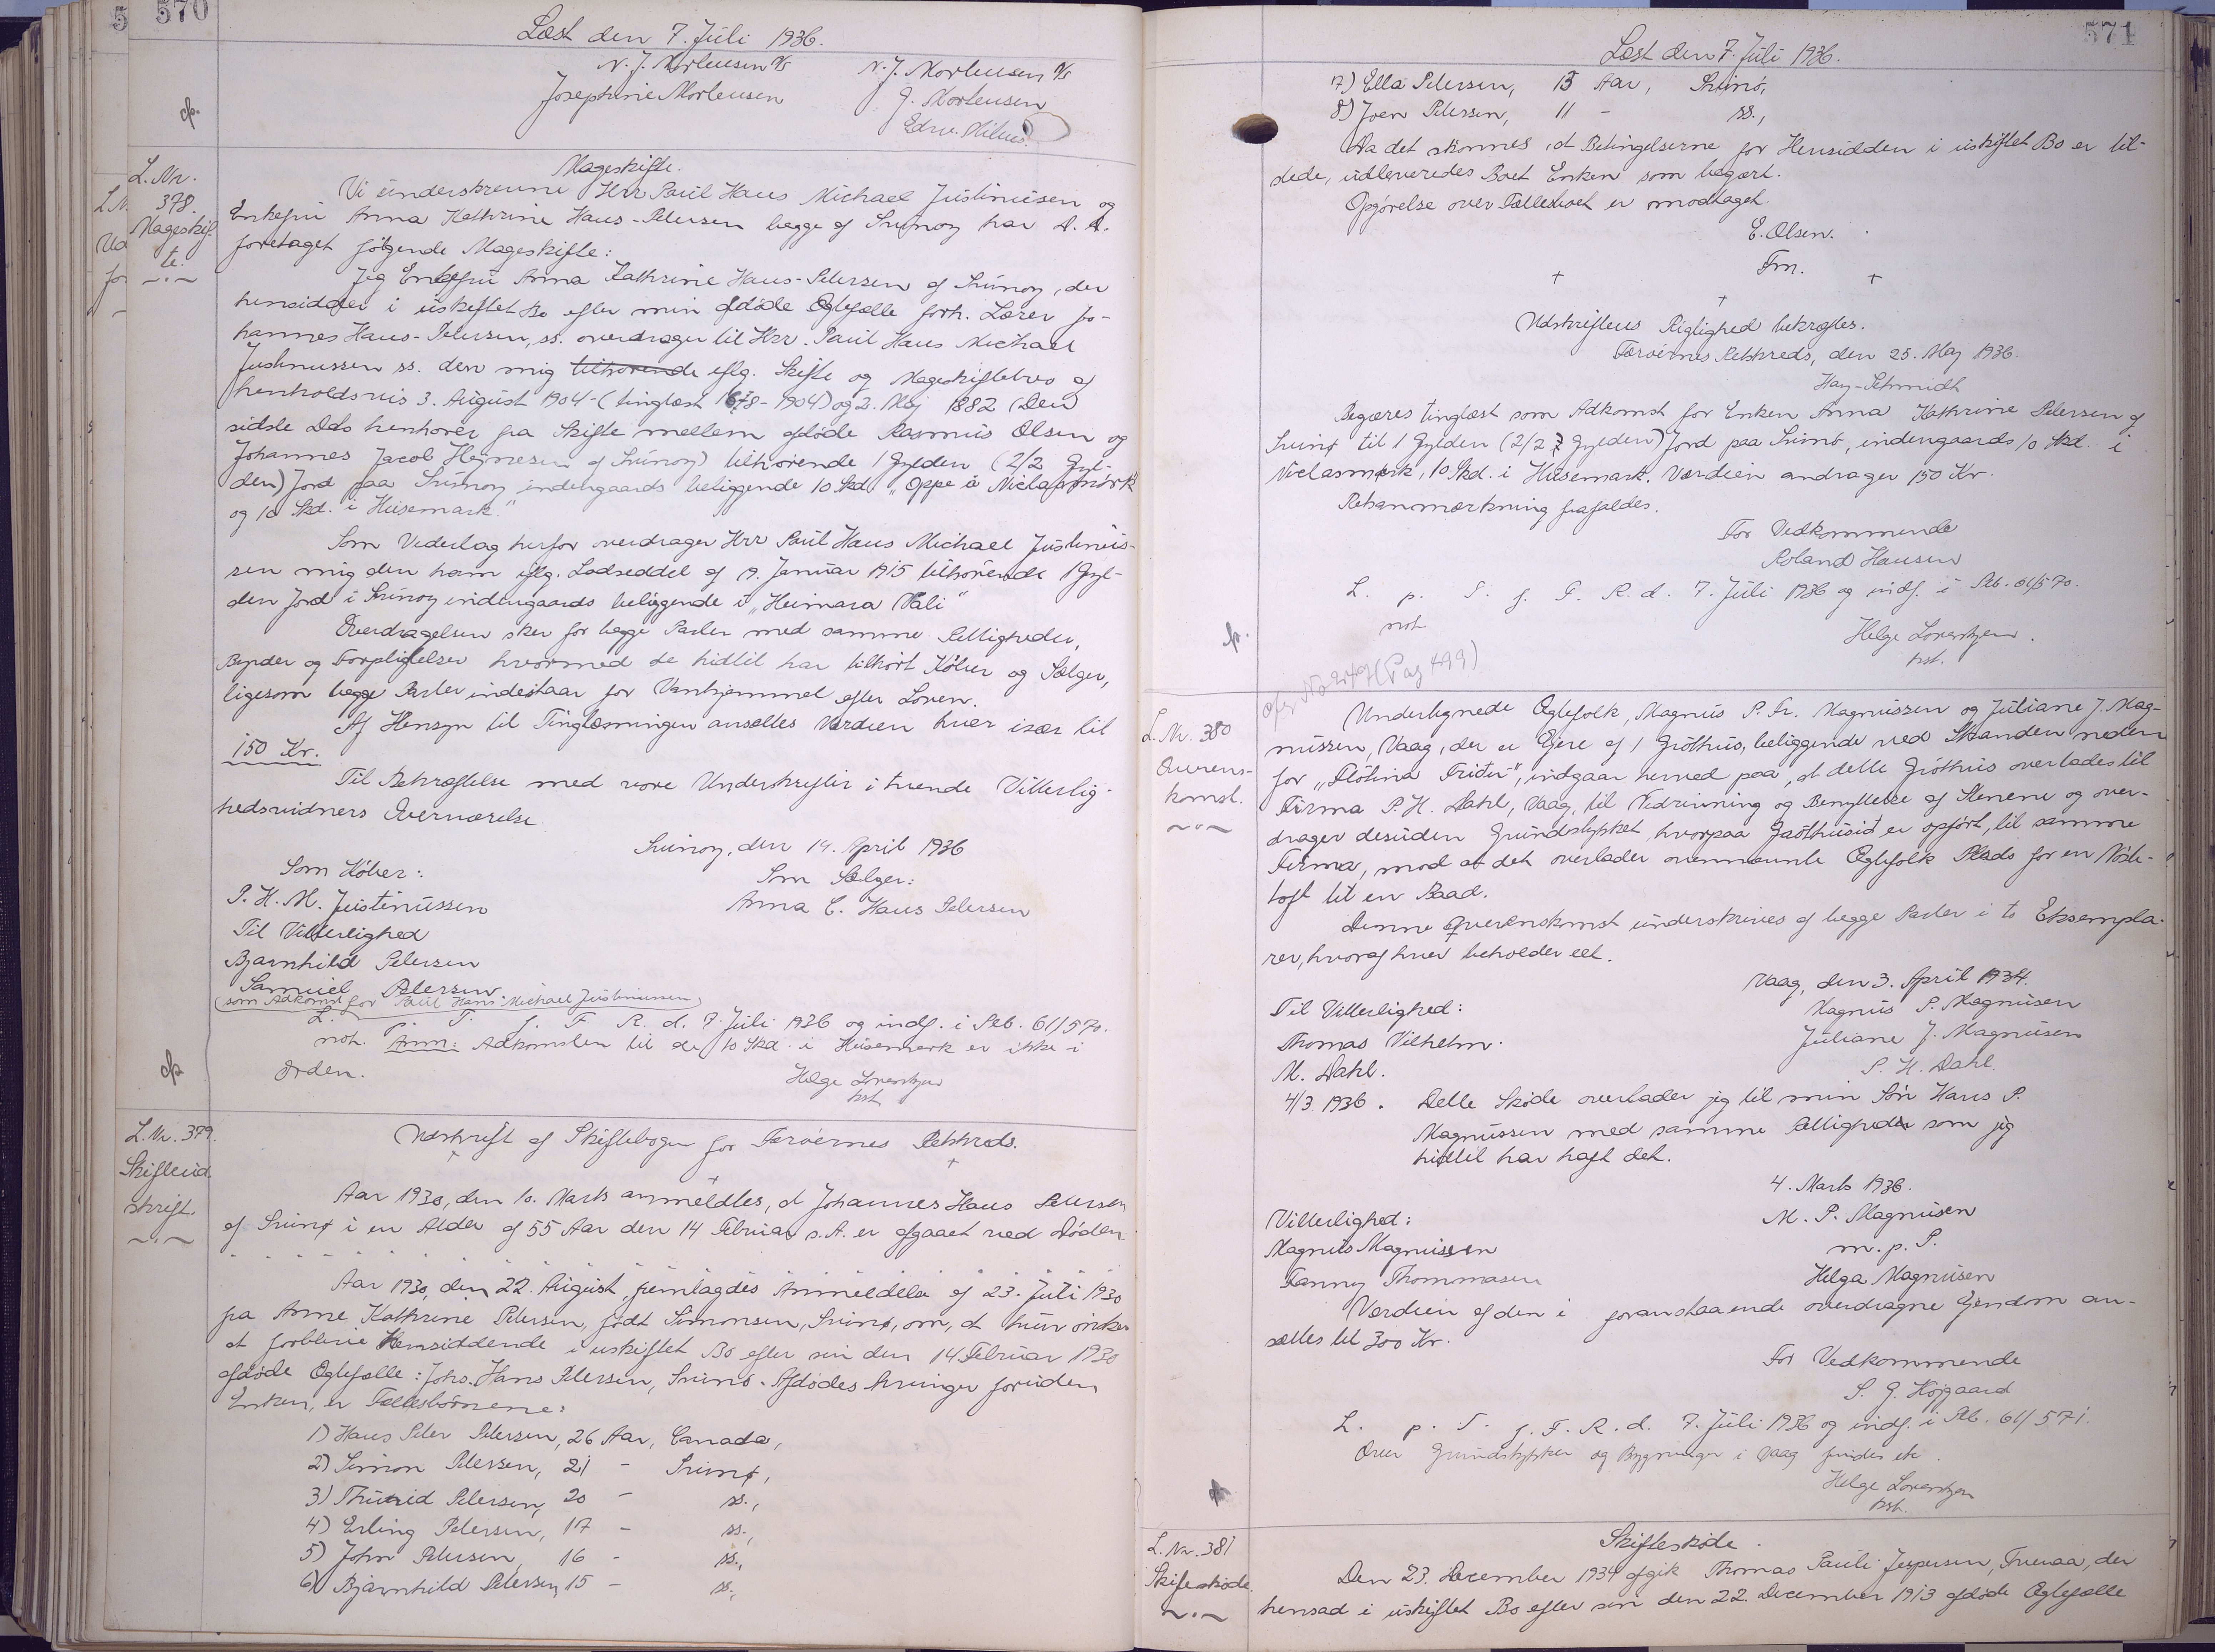 570
Læst den 7. Juli 1936.
N. J. Mortensen
Josephine Mortensen
N. J. Mortensen
J. Mortensen
L. Nr.
378.
Mageskif-
te.
Mageskifte.
Vi underskrevne Hrr Paul Hans Michael Justinusen og
Enkefru Anna Kathrine Hans-Petersen begge af Svinoy har D. D.
foretaget følgende Mageskifte:
Jeg Enkefru Anna Kathrine Hans-Petersen af Svinoy, der
hensidder i uskiftet Bo efter min afdøde Ægtefælle forh. Lærer Jo-
hannes Hans-Petersen, ss. overdrager til Hrr. Paul Hans Michael
Justinussen ss. den mig tilhørende iflg. Skifte og Mageskiftebrev af
henholdsvis 3. August 1904 - (tinglæst 16/8 - 1904) og 2. Maj 1882 (Den
sidste Dels henhører fra Skifte mellem afdøde Rasmus Olsen og
Johannes Jacob Heinesen af Svinoy) tilhørende 1 Gylden (2/2 Gyl-
den) Jord paa Svinoy indengaards beliggende 10 Skd. "Oppe á Niclasmørk
og 10 Skd. i Húsemark."
Som Vederlag herfor overdrager Hrr Paul Hans Michael Justinus-
sen mig den ham iflg. Lodseddel af 19. Januar 1915 tilhørende 1 Gyl-
den Jord i Svinoy indengaards beliggende i "Heimara Vali"
Overdragelsen sker for begge Parter med samme Rettigheder,
Byrder og Forpligtelser hvormed de hidtil har tilhørt Køber og Sælger,
ligesom begge Parter indestaar for Vanhjemmel efter Loven.
Af Hensyn til Tinglæsningen ansættes Værdien hver især til
150 Kr.
Til Bekræftelse med vore Underskrifter i tvende Vitterlig-
hedsvidners Overværelse
Svinoy, den 19. April 1936
Som Køber:
Som Sælger:
P. H. M. Justinussen
Anna C. Hans Petersen
Til Vitterlighed
Bjarnhild Petersen
Samuel Petersen
(som Adkomst for Paul Hans Michael Justinussen)
L. p. T. f. F. R. d. 7. Juli 1936 og indf. i Skb. 61/570.
not. Anm: Adkomsten til de 10 Skd. i Húsemark er ikke i
Orden.
Helge Lorentzen
kst.
L. Nr. 379.
Skifteud-
skrift.
Udskrift af Skiftebogen for Færøernes Retskreds.
Aar 1930, den 10. Marts anmeldtes, at Johannes Hans Petersen
af Svinø i en Alder af 55 Aar den 14 Februar s. A. er afgaaet ved Døden.
Aar 1930, den 22. August, fremlagdes Anmeldelse af 23. Juli 1930
fra Anne Kathrine Petersen, født Simonsen, Svinø, om, at hun ønsker
at forblive Hensiddende i uskiftet Bo efter sin den 14 Februar 1930
afdøde Ægtefælle: Johs. Hans Petersen, Svinø. Afdødes Arvinger foruden
Enken, er Fællesbørnene:
1) Hans Peter Petersen, 26 Aar, Canada,
2) Simon Petersen, 21 - Svinø,
3) Thurid Petersen, 20 - ss.,
4) Erling Petersen, 17 - ss.,
5) John Petersen, 16 - ss.,
6) Bjarnhild Petersen, 15 - ss.,
571
Læst den 7. Juli 1936.
7) Ella Petersen, 13 Aar, Svinø,
8) Joen Petersen, 11 - ss.,
Da det skønnes, at Betingelserne for Hensidden i uskiftet Bo er til-
stede, udleveredes Boet Enken som begært.
Opgørelse over Fællesboet er modtaget.
E. Olsen.
Fm.
Udskriftens Rigtighed bekræftes.
Færøernes Retskreds, den 25. Maj 1936.
Hay-Schmidt
Begæres tinglæst som Adkomst for Enken Anna Kathrine Petersen af
Svinø til 1 Gylden (2/2 Gylden) Jord paa Svinø, indengaards 10 Skd. i
Niclasmørk, 10 Skd. i Húsemark. Værdien andrager 150 Kr.
Retsanmærkning frafaldes.
For Vedkommende
Roland Hansen
L. p. T. f. F. R. d. 7. Juli 1936 og indf. i Skb. 61/570.
not
Helge Lorentzen.
kst.
L. Nr. 380
Overens-
komst.
Undertegnede Ægtefolk, Magnus P. Fr. Magnussen og Juliane J. Mag-
nussen, Vaag, der er Ejere af 1 Gróthus, beliggende ved Stranden neden
for "Flótina Tríðu", indgaar herved paa, at dette Gróthus overlades til
Firma P. H. Dahl, Vaag, til Nedrivning og Benyttelse af Stenene og over-
drager desuden Grundstykket, hvorpaa Gróthusið er opført, til samme
Firma, mod at det overlader ovennævnte Ægtefolk Plads for en Nøste-
toft til en Baad.
Denne Overenskomst underskrives af begge Parter i to Eksempla-
rer, hvoraf hver beholder eet.
Vaag, den 3. April 1934.
Til Vitterlighed:
Magnus P. Magnusen
Thomas Vilhelm.
Juliane J. Magnusen
M. Dahl.
P. H. Dahl.
4/3 1936. Dette Skøde overlader jeg til min Søn Hans P.
Magnussen med samme Rettigheder som jeg
hidtil har haft det.
4. Marts 1936.
Vitterlighed:
M. P. Magnusen
Magnus Magnussen
m. p. P.
Fanny Thommasen
Helga Magnusen
Værdien af den i foranstaaende overdragne Ejendom an-
sættes til 300 Kr.
For Vedkommende
S. J. Højgaard
L. p. T. f. F. R. d. 7. Juli 1936 og indf. i Skb. 61/571.
Over Grundstykker og Bygninger i Vaag findes etc.
Helge Lorentzen
kst.
L. Nr. 381
Skifteskøde.
Skifteskøde.
Den 23. December 1934 afgik Thomas Pauli Jespersen, Fueraa, der
hensad i uskiftet Bo efter sin den 22. December 1913 afdøde Ægtefælle